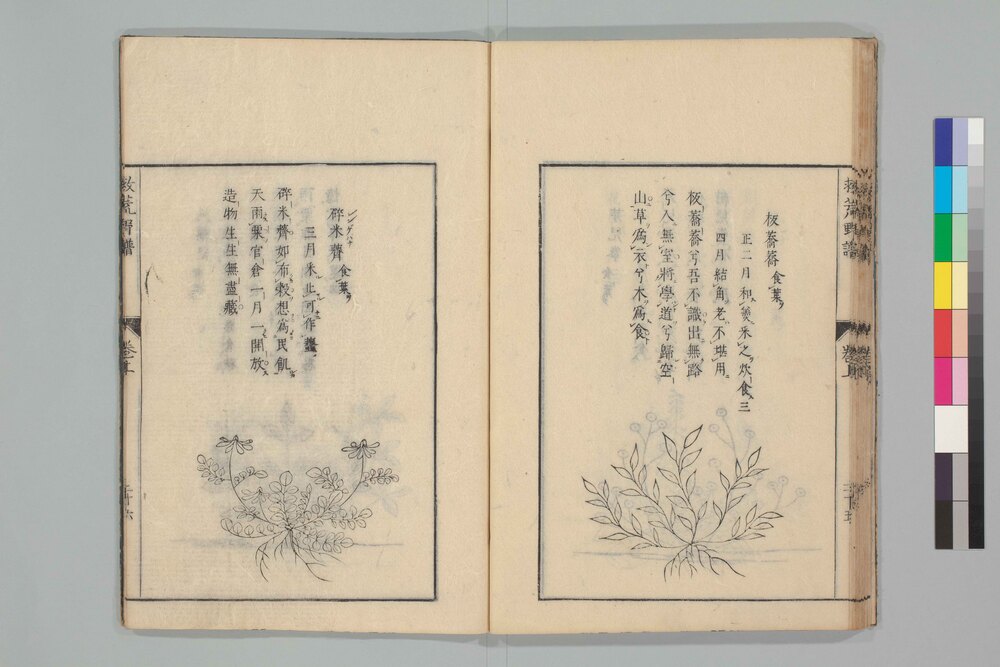 板蕎蕎 食葉
正二月和羹采之炊食三
四月結角老不堪用
板蕎蕎兮吾不識出無路
兮入無室將學道兮歸空
山草為衣兮木為食
碎米薺 食葉
三月采止可作虀
碎米薺如布穀想為民飢
天雨粟官倉一月一開放
造物生生無盡藏
救荒野譜